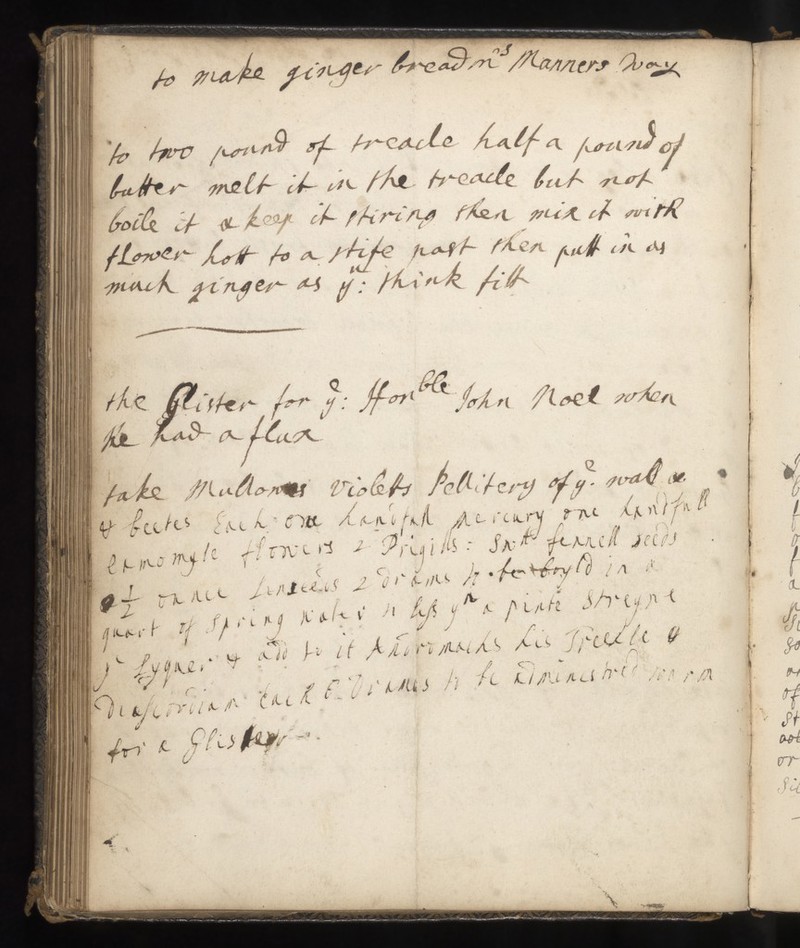 to make ginger bread m:s Manners way
to two pound of treacle half a pound of
butter melt it in the treacle but not
boile it & keep it stiring then mix it with
flower hott to a stife past then putt in as
much ginger as yu: think fitt
the Glister for ye: Honble John Noel when
he had a flux
take Mullows violetts Pellitery of ye wall
& beetes Each one handfull Mercury one handfull
camomyle flowers 2 Prigills: Swtt fennell seeds
1/2 ounce Linseeds 2 drams to be boyld in a
quart of Spring water to less yn a pinte Streyne
ye Lyquer & add to it Andromachs his Treacle &
Diascordium Each Drames to be administred warm
for a Glister